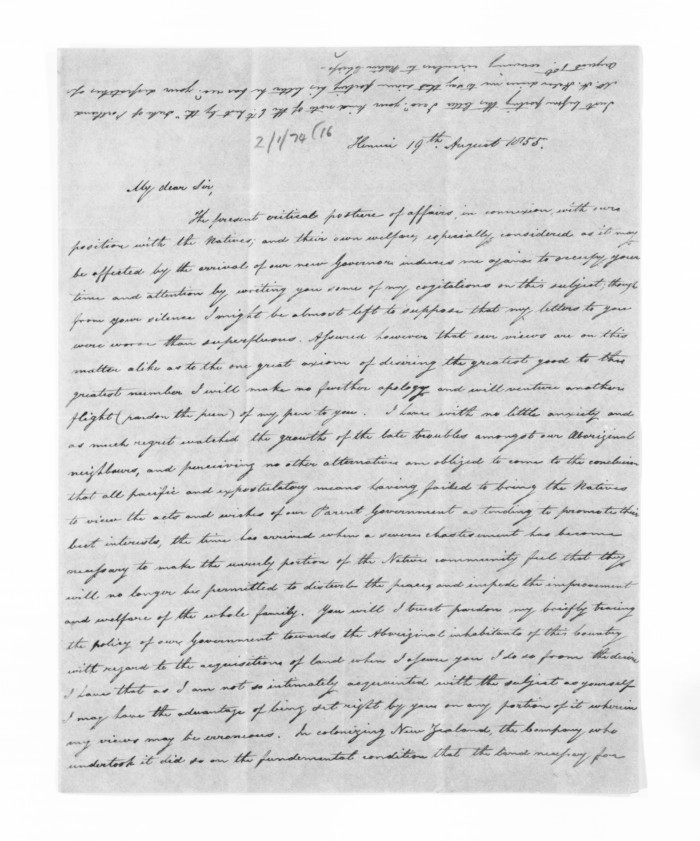 Just before posting this letter I saw your kind note of the 6th inst by the "Duke of Portland
St. Hd. desires me to say that since posting his letter he has rec. your despatches of
August 10th covering enclosures to Robin Sharp.
2/1/74 (16
Henui 19th August 1855.
My dear Sir,
The present critical posture of affairs, in connexion, with ours
position with the Natives, and their own welfare, especially, considered as it may
be affected by the arrival of our new Governor induces me again to occupy your
time and attention by writing you some of my cogitations on this subject, though
from your silence I might be almost left to suppose that my letters to you
were worse than superfluous. Assured however that our views are on this
matter alike as to the one great axiom of desiring the greatest good to the
greatest number I will make no further apology and will venture another
flight (pardon the pun) of my pen to you. I have with no little anxiety and
as much regret watched the growth of the late troubles amongst our Aboriginal
neighbours, and perceiving no other alternative am obliged to come to the conclusion
that all pacific and expostulatory means having failed to bring the Natives
to view the acts and wishes of our Parent Government as tending to promote their
best interests, the time has arrived when a severe chastisement has become
necessary to make the unruly portion of the Native community feel that they
will no longer be permitted to disturb the peace, and impede the improvement
and welfare of the whole family. You will I trust pardon my briefly tracing
the policy of our Government towards the Aboriginal inhabitants of this Country
with regard to the acquisitions of land when I assure you I do so from the desire
I have that as I am not so intimately acquainted with the subject as yourself
I may have the advantage of being set right by you on any portion of it wherein
my views may be erroneous. In colonizing New Zealand, the Company who
undertook it did so on the fundamental condition that the land necessary for